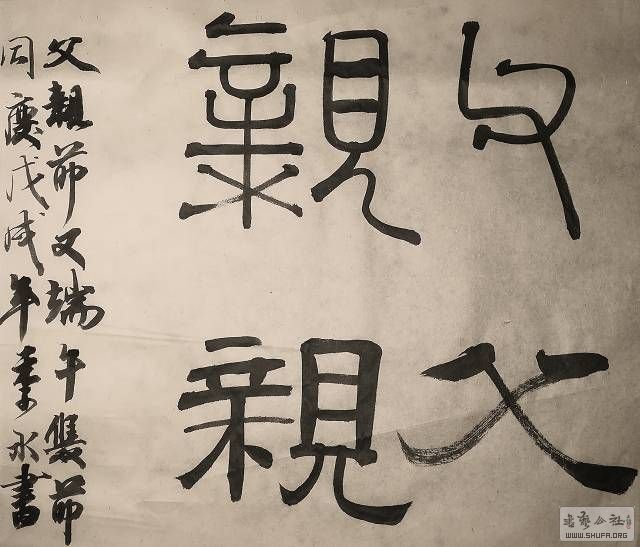 父親
父親
父親節又端午雙節
同慶戊戌年季永書
书艺公社
WWW.SHUFA.ORG